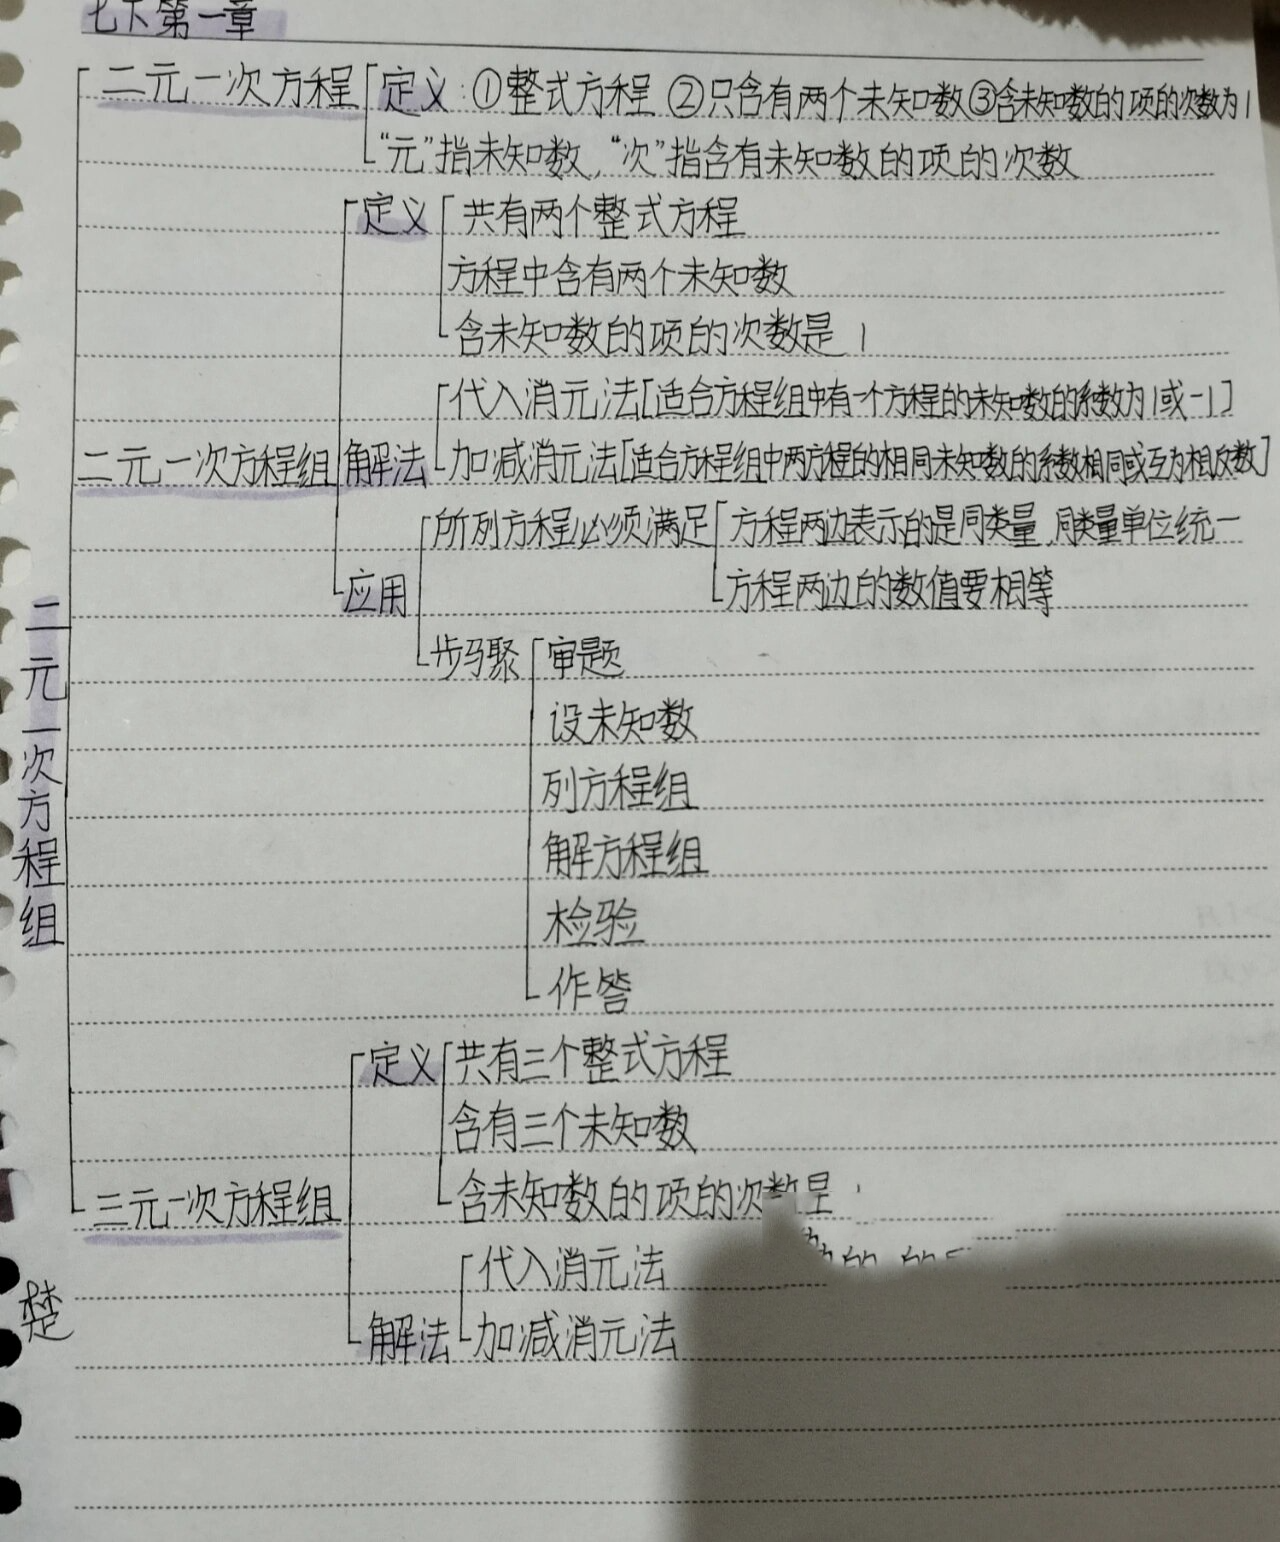 七下第一章
二元一次方程 定义：①整式方程 ②只含有两个未知数③含未知数的项的次数为1
“元”指未知数，“次”指含有未知数的项的次数
定义 共有两个整式方程
方程中含有两个未知数
含未知数的项的次数是1
代入消元法[适合方程组中有一个方程的未知数的系数为1或-1]
二元一次方程组 解法 加减消元法[适合方程组中两方程的相同未知数的系数相同或互为相反数]
所列方程必须满足 方程两边表示的是同类量，同类量单位统一
应用 方程两边的数值要相等
步骤 审题
设未知数
列方程组
解方程组
检验
作答
二元一次方程组
定义 共有三个整式方程
含有三个未知数
三元一次方程组 含未知数的项的次数是
代入消元法
解法 加减消元法
楚